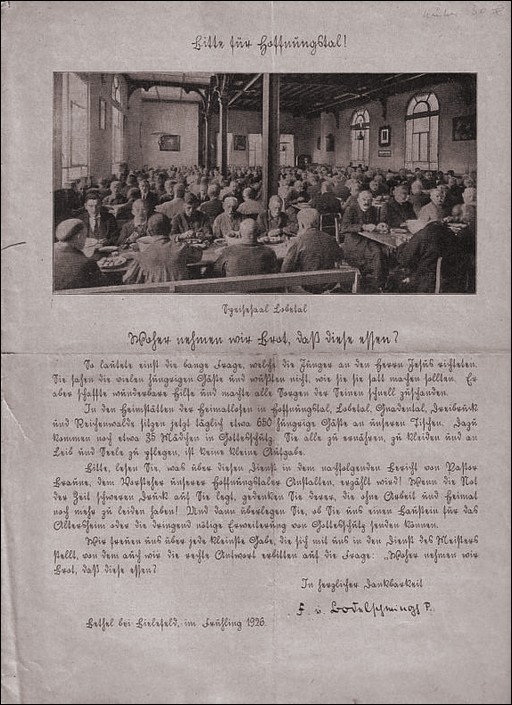 Bitte für Hoffnungstal!
Speisesaal Lobetal
Woher nehmen wir Brot, daß diese essen?
So lautete einst die bange Frage, welche die Jünger an den Herrn Jesus richteten.
Sie sahen die vielen hungrigen Gäste und wußten nicht, wie sie sie satt machen sollten. Er
aber schaffte wunderbare Hilfe und machte alle Sorgen der Seinen schnell zuschanden.
In den Heimstätten der Heimatlosen in Hoffnungstal, Lobetal, Gnadental, Dreibrück
und Reichenwalde sitzen jetzt täglich etwa 650 hungrige Gäste an unseren Tischen. Dazu
kommen noch etwa 35 Mädchen in Gottesschutz. Sie alle zu ernähren, zu kleiden und an
Leib und Seele zu pflegen, ist keine kleine Aufgabe.
Bitte, lesen Sie, was über diesen Dienst in dem nachfolgenden Bericht von Pastor
Braune, dem Vorsteher unserer Hoffnungstaler Anstalten, erzählt wird! Wenn die Not
der Zeit schweren Druck auf Sie legt, gedenken Sie derer, die ohne Arbeit und Heimat
noch mehr zu leiden haben! Und dann überlegen Sie, ob Sie uns einen Baustein für das
Altersheim oder die dringend nötige Erweiterung von Gottesschutz senden können.
Wir freuen uns über jede kleinste Gabe, die sich mit uns in den Dienst des Meisters
stellt, von dem auch wir die rechte Antwort erbitten auf die Frage: „Woher nehmen wir
Brot, daß diese essen?
In herzlicher Dankbarkeit
F. v. Bodelschwingh P.
Bethel bei Bielefeld, im Frühling 1926.